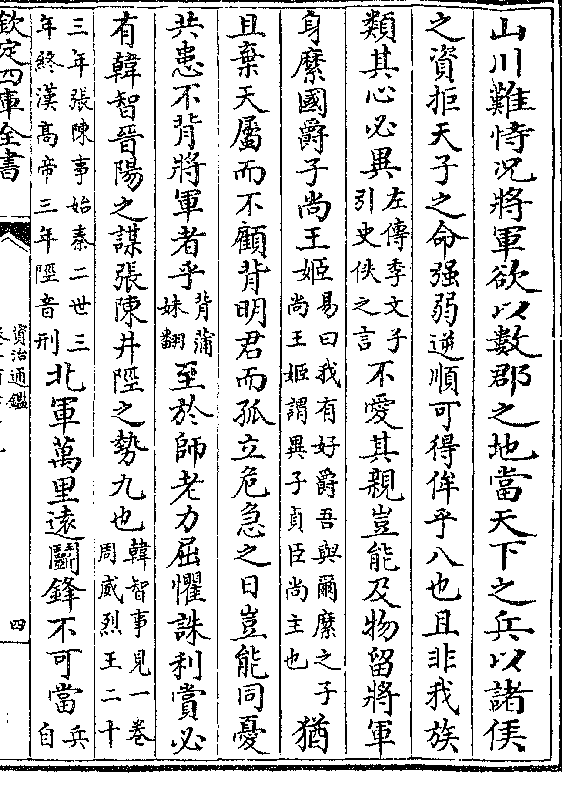 山川難恃况將軍欲以數郡之地當天下之兵以諸侯
之資拒天子之命强弱逆順可得侔乎八也且非我族
類其心必異左傳季文子引史佚之言不愛其親豈能及物留將軍
身縻國爵子尚王姬易曰我有好爵吾與爾縻之子尚王姬謂異子貞臣尚主也猶
且棄天屬而不顧背明君而孤立危急之日豈能同憂
共患不背將軍者乎背蒲妹翻至於師老力屈懼誅利賞必
有韓智晉陽之謀張陳井陘之勢九也韓智事見一卷周威烈王二十
三年張陳事始秦二世三年終漢高帝三年陘音刑北軍萬里遠鬭鋒不可當兵自
欽定四庫全書
資治通鑑
四